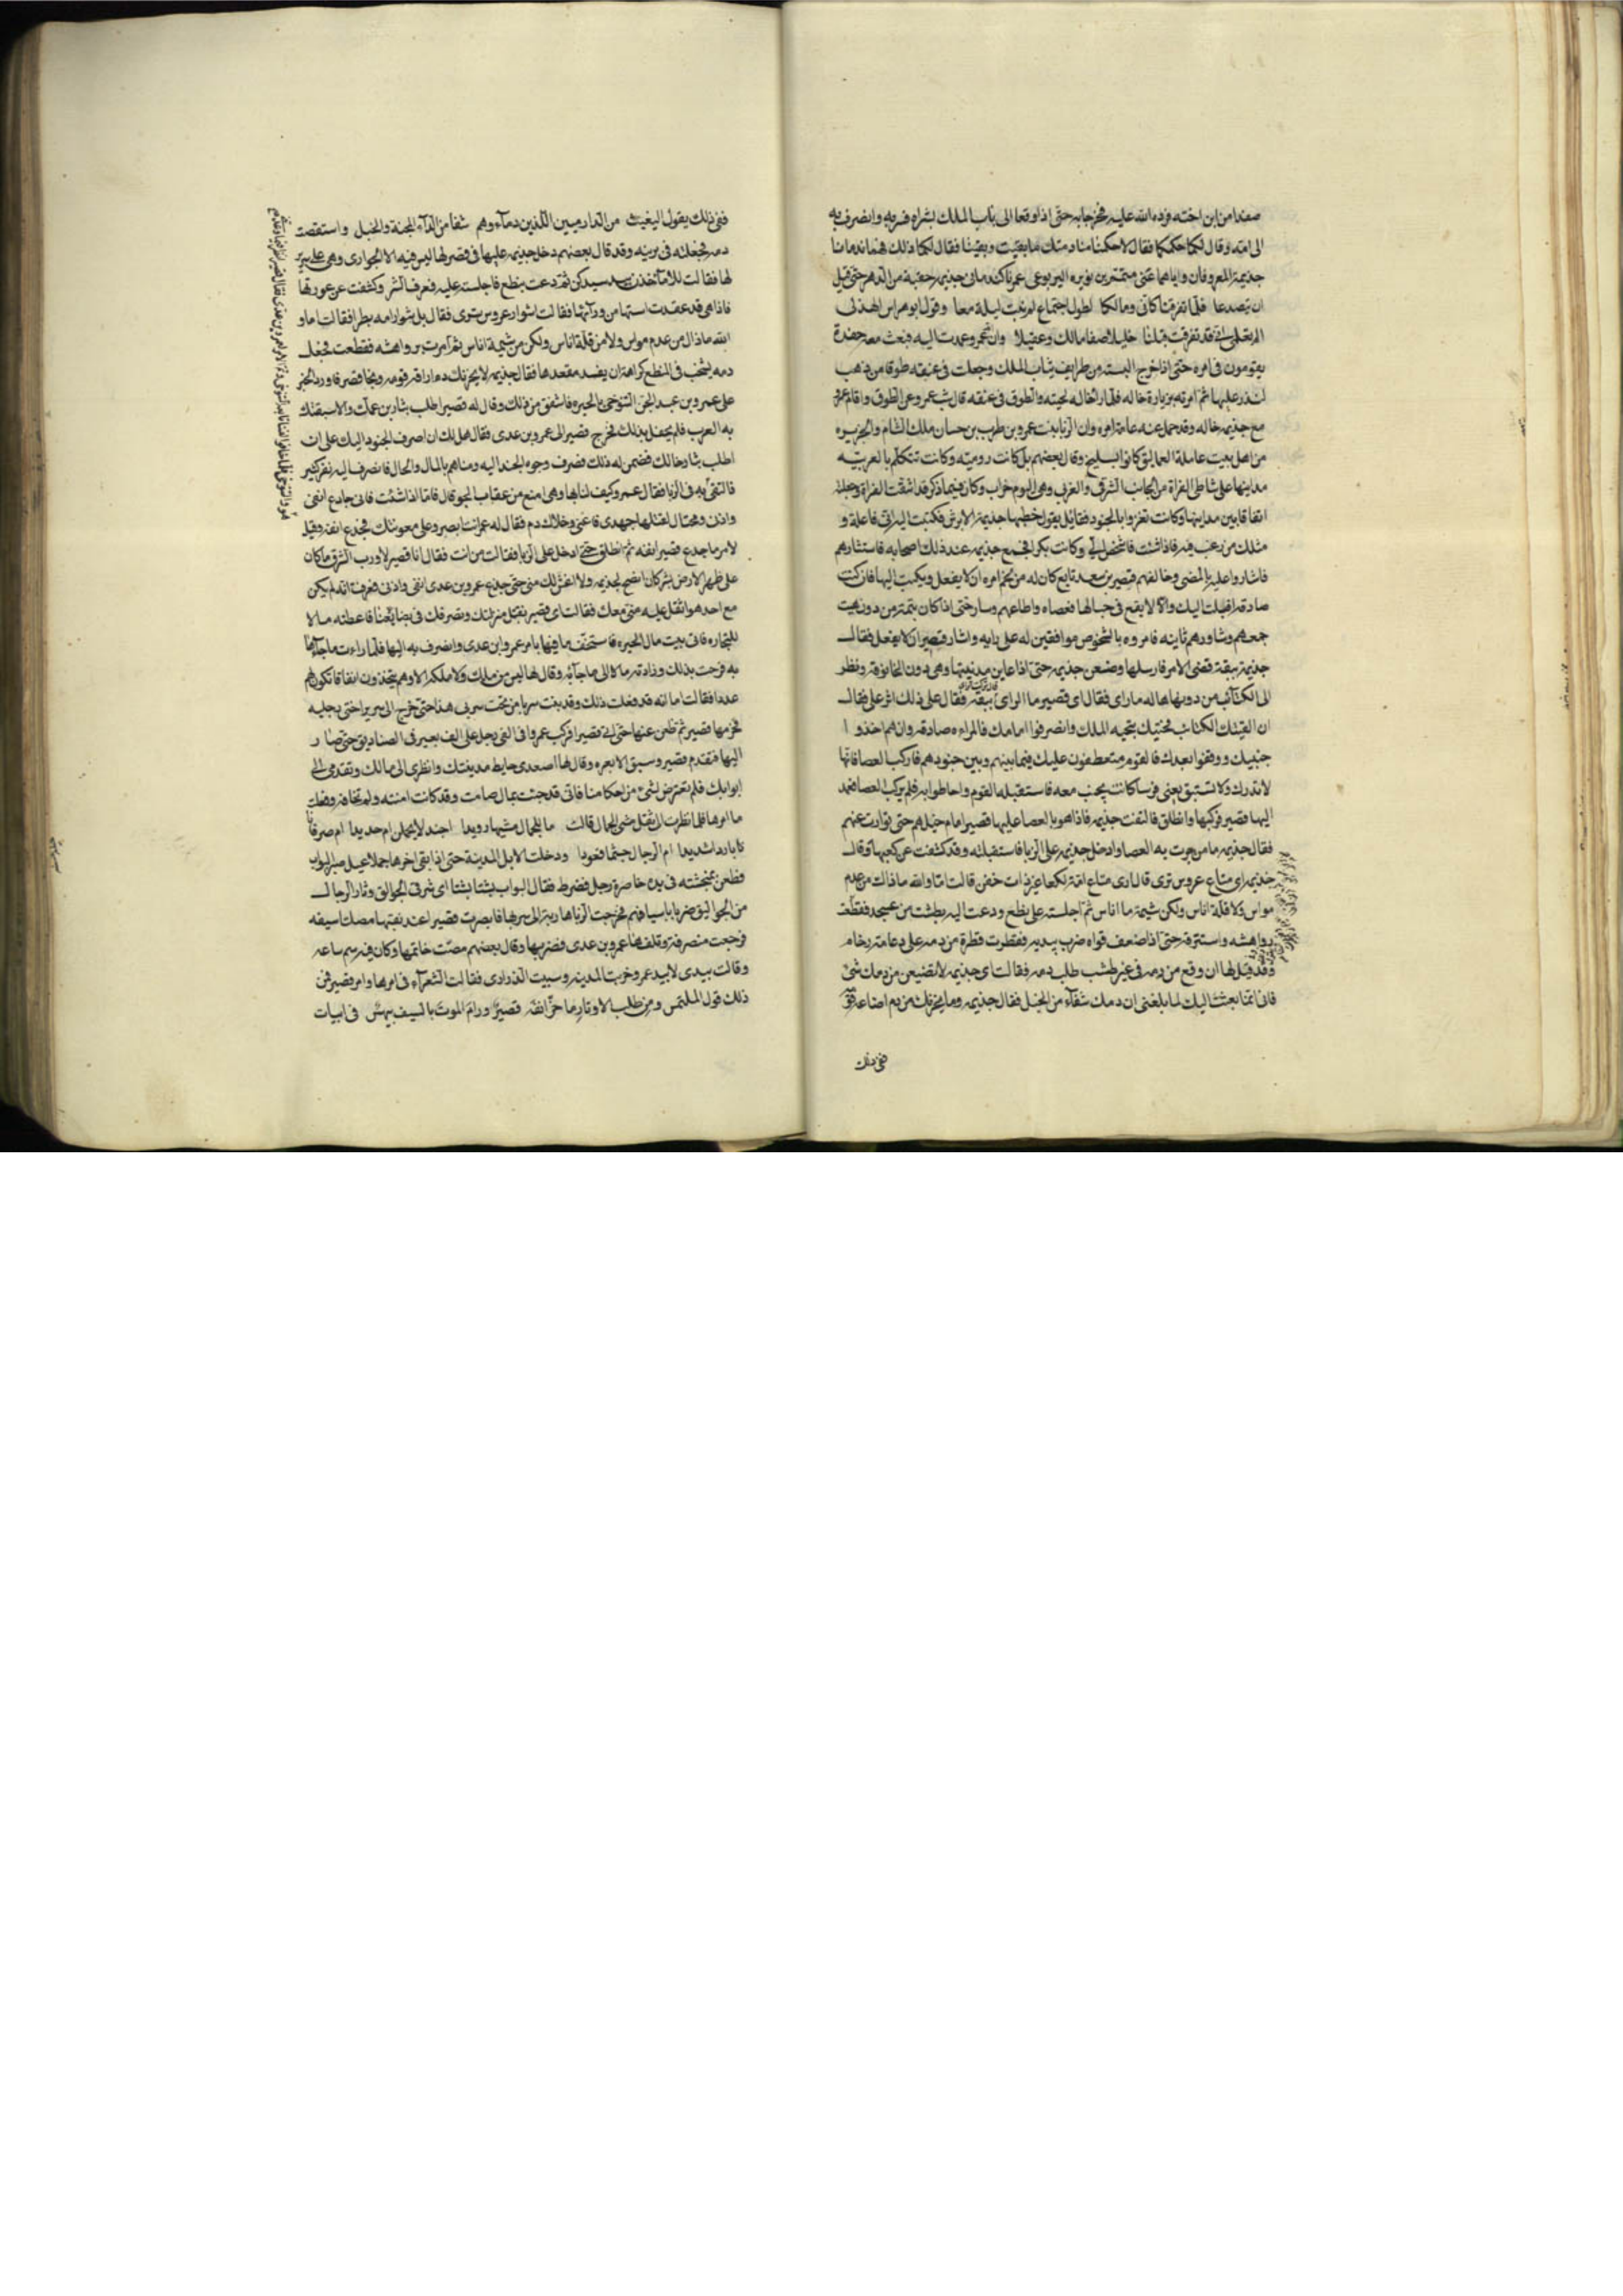 صغدا من ابن اخته فرده الله عليه فخرجا به حتى اذا وقعا الى باب الملك بشراه فسر به وانصرف به
الى امه وقال لكما حكمكما فقالا حكمنا منادمتك ما بقيت وبقينا فقال لكما ذلك فهما ندمانا
جذيمة المعروفان واياهما عنى متمم بن نويره اليربوعى وكنا كندمانى جذيمه حقبة من الدهر حتى قيل
ان يتصدعا فلما تفرقنا كانى ومالكا لطول اجتماع لم نبت ليلة معا وقول ابو خراش الهذلى
الم تعلمى ان قد تفرقت قبلنا خليلا صفا مالك وعقيلا وان عمرو عمدت اليه فبعث معه حفدة
يقومون فى امره حتى اذا خرج البسته من طرايف ثياب الملك وجعلت فى عنقه طوقا من ذهب
لنذر عليها ثم امرته بزيارة خاله فلما راى خاله لحيته والطوق فى عنقه قال شب عمرو عن الطوق واقام عمرو
مع جذيمه خاله وقد حمل عنه عامة امره وان الزبا بنت عمرو بن ظرب بن حسان ملك الشام والجزيره
من اهل بيت عاملة العماليق كانوا بسليح وقال بعضهم بل كانت روميه وكانت تتكلم بالعربيه
مداينها على شاطى الفراة من الجانب الشرقى والغربى وهى اليوم خراب وكان فيما ذكر قد اشقت الفراة وجعلت
انفاقا بين مداينها وكانت تغزوا بالجنود فقايل يقول خطبها جذيمة الابرش فكتبت اليه انى فاعلة و
مثلك من رغب فيه فاذا شئت فاشخص الى وكانت بكرا فجمع جذيمه عند ذلك اصحابه فاستشارهم
فاشاروا عليه بالمضى وخالفهم قصير بن سعد تابع كان له من لخم امره ان لا يفعل ويكتب اليها فان كنت
صادقه اقبلت اليك والا لا يقع فى حبالها فعصاه واطاعهم وسار حتى اذا كان ببقة من دون هيت
جمعهم وشاورهم ثانيه فامروه بالشخوص موافقين له على رايه واشار قصير ان لا يفعل فقال
جذيمه ببقة قضى الامر فارسلها وضعن جذيمه حتى اذا عاين مدينتها وهى دون الخانوقة ونظر
الى الكتائب من دونها هاله ما راى فقال اى قصير ما الراى ببقة فقال على ذلك اثر على فقال
ان لقيتك الكتائب فحيتك بتحية الملك وانصرفوا امامك فالمراه صادقه وان هم اخذوا
جنبيك ووقفوا بعدك فالقوم متعطفون عليك فيما بينهم وبين جنودهم فاركب العصا فانها
لا تدرك ولا تستبق يعنى فرسا كانت يجنب معه فاستقبله القوم واحاطوا به فلم يركب العصا فعمد
اليها قصير فركبها وانطلق فالتفت جذيمه فاذا هو بالعصا عليها قصير امام خيلهم حتى توارت عنهم
فقال جذيمه ما من جرت به العصا وادخل جذيمه على الزبا فاستقبلته وقد كشفت عن كعبها وقال
جذيمه اى متاع عروس ترى قال ارى متاع امة لكعا غير ذات خفر قالت اما والله ما ذاك من عدم
مواس ولا قلة اناس ولكن شيمة ما اناس ثم اجلسته على نطع ودعت اليه بطشت من عسجد فقطعت
رواهشه واستنزفه حتى اذا ضعف قواه ضرب بيديه فقطرت قطرة من دمه على دعامة رخام
وقد قيل لها ان وقع من دمه فى غير طشت طلب دمه فقالت اى جذيمه لا تضيعن من دمك شئ
فانى انما بعثت اليك لما بلغنى ان دمك شفآء من الخبل فقال جذيمه وما يحزنك من دم اضاعه
ففى ذلك
ففى ذلك يقول البغيث من الدارميين الذين دمآءوهم شفا من الدآء المجنة والخبل واستقصت
دمه فجعلته فى برنيه وقد قال بعضهم دخل جذيمه عليها فى قصر لها ليس فيه الا الجوارى وهى على سرير
لها فقالت للامآء خذن بيد سيدكن ثم دعت بنطع فاجلسته عليه فعرف الشر وكشفت عن عورتها
فاذا هى قد عقدت استها من ورآئها فقالت اشوار عروس ترى فقال بل شوار امه بظرا فقالت اما و
الله ما ذاك من عدم مواس ولا من قلة اناس ولكن من شيمة اناس ثم امرت برواهشه فقطعت فجعل
دمه يشخب فى النطع كراهة ان يفسد مقعدها فقال جذيمه لا يحزنك دم اراقه قومه ونجا قصير فاورد الخبر
على عمرو بن عبد الجن التنوخى بالحيره فاشفق من ذلك وقال له قصير اطلب بثار بن عمك والا سبقتك
به العرب فلم يحفل بذلك فخرج قصير الى عمرو بن عدى فقال هل لك ان اصرف الجنود اليك على ان
اطلب بثار خالك فضمن له ذلك فصرف وجوه الجند اليه ومناهم بالمال والحال فانصرف اليه نفر كثير
فالتقى به فى الزبا فقال عمرو كيف لنا بها وهى امنع من عقاب الجو قال فاما اذا شئت فانى جادع انفى
واذنى ومحتال لقتلها جهدى فاعنى وخلاك دم فقال له عمرو انت ابصر وعلى معونتك فجدع انفه وقيل
لامر ما جدع قصير انفه ثم انطلق حتى دخل على الزبا فقالت من انت فقال انا قصير لا ورب الشرق ما كان
على ظهر الارض بشر كان انصح لجذيمه ولا اغش لك منى حتى جدع عمرو بن عدى انفى واذنى فعرفت انه لم يكن
مع احد هو اثقل عليه منى معك فقالت اى قصير نقبل منزلتك ونصرفك فى بضايعنا فاعطته مالا
للتجاره فاتى بيت مال الحيره فاستخف ما فيها بامر عمرو ابن عدى وانصرف به اليها فلما راءت ما جآءها
به فرحت بذلك وزادته مالا الى ما جآء به وقال لها ليس من ملك ولا ملكه الا وهم يتخذون انفاقا تكون لهم
عددا فقالت اما انه قد فعلت ذلك وقد بنيت سربا من تحت سريرى هذا حتى خرج الى سرير اختى رحيله
فخرمها قصير ثم ظعن عنها حتى اتى قصيرا فركب عمرو فى الفى رجل على الف بعير فى الصناديق حتى صار
اليها فتقدم قصير وسبق الابعره وقال لها اصعدى حايط مدينتك وانظرى الى مالك وتقدمى الى
ابوابك فلم تعترض لشئ من احكامنا فانى قد جئت بمال صامت وقد كانت امنته ولم تخافه وفعلت
ما امرها فلما نظرت الى ثقل مشى الجمال قالت ما للجمال مشيها رويدا اجندلا يحملن ام حديدا ام صرفانا
تابارداشديدا ام الرجال جثما قعودا ودخلت الابل المدينة حتى اذا بقى اخرها جملا عيل صبر البواب
فطعن بمنخسته فى يده خاصرة رجل فضرط فقال البواب بشتا بشتا اى شر فى الجوالق وثار الرجال
من الجواليق ضربا باسيافهم فخرجت الزبا هاربة الى سربها فابصرت قصيرا عند نفقها مصلتا سيفه
فرجعت منصرفة وتلقاها عمرو بن عدى فضربها وقال بعضهم مصت خاتمها وكان فيه سم ساعه
وقالت بيدى لا بيد عمرو وخربت المدينه وسبيت الذرارى فقالت الشعرآء فى امرها وامر قصير فمن
ذلك قول الملتمس ومن طلب الاوتار ما حز انفه قصير ورام الموت بالسيف بيهس فى ابيات